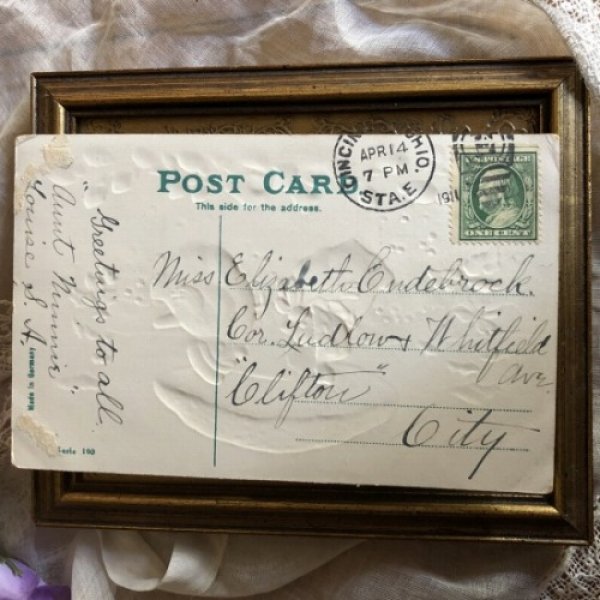 POST CARD
This side for the address.
CINCINNATI, OHIO.
APR 14
7 PM
STA. E
191
U.S. POSTAGE
ONE CENT
"Greetings to all.
Aunt Minnie"
Louise S. A.
Made in Germany
Serie 190
Miss Elizabeth Endebrock.
Cor. Ludlow & Whitfield
Ave
"Clifton"
City